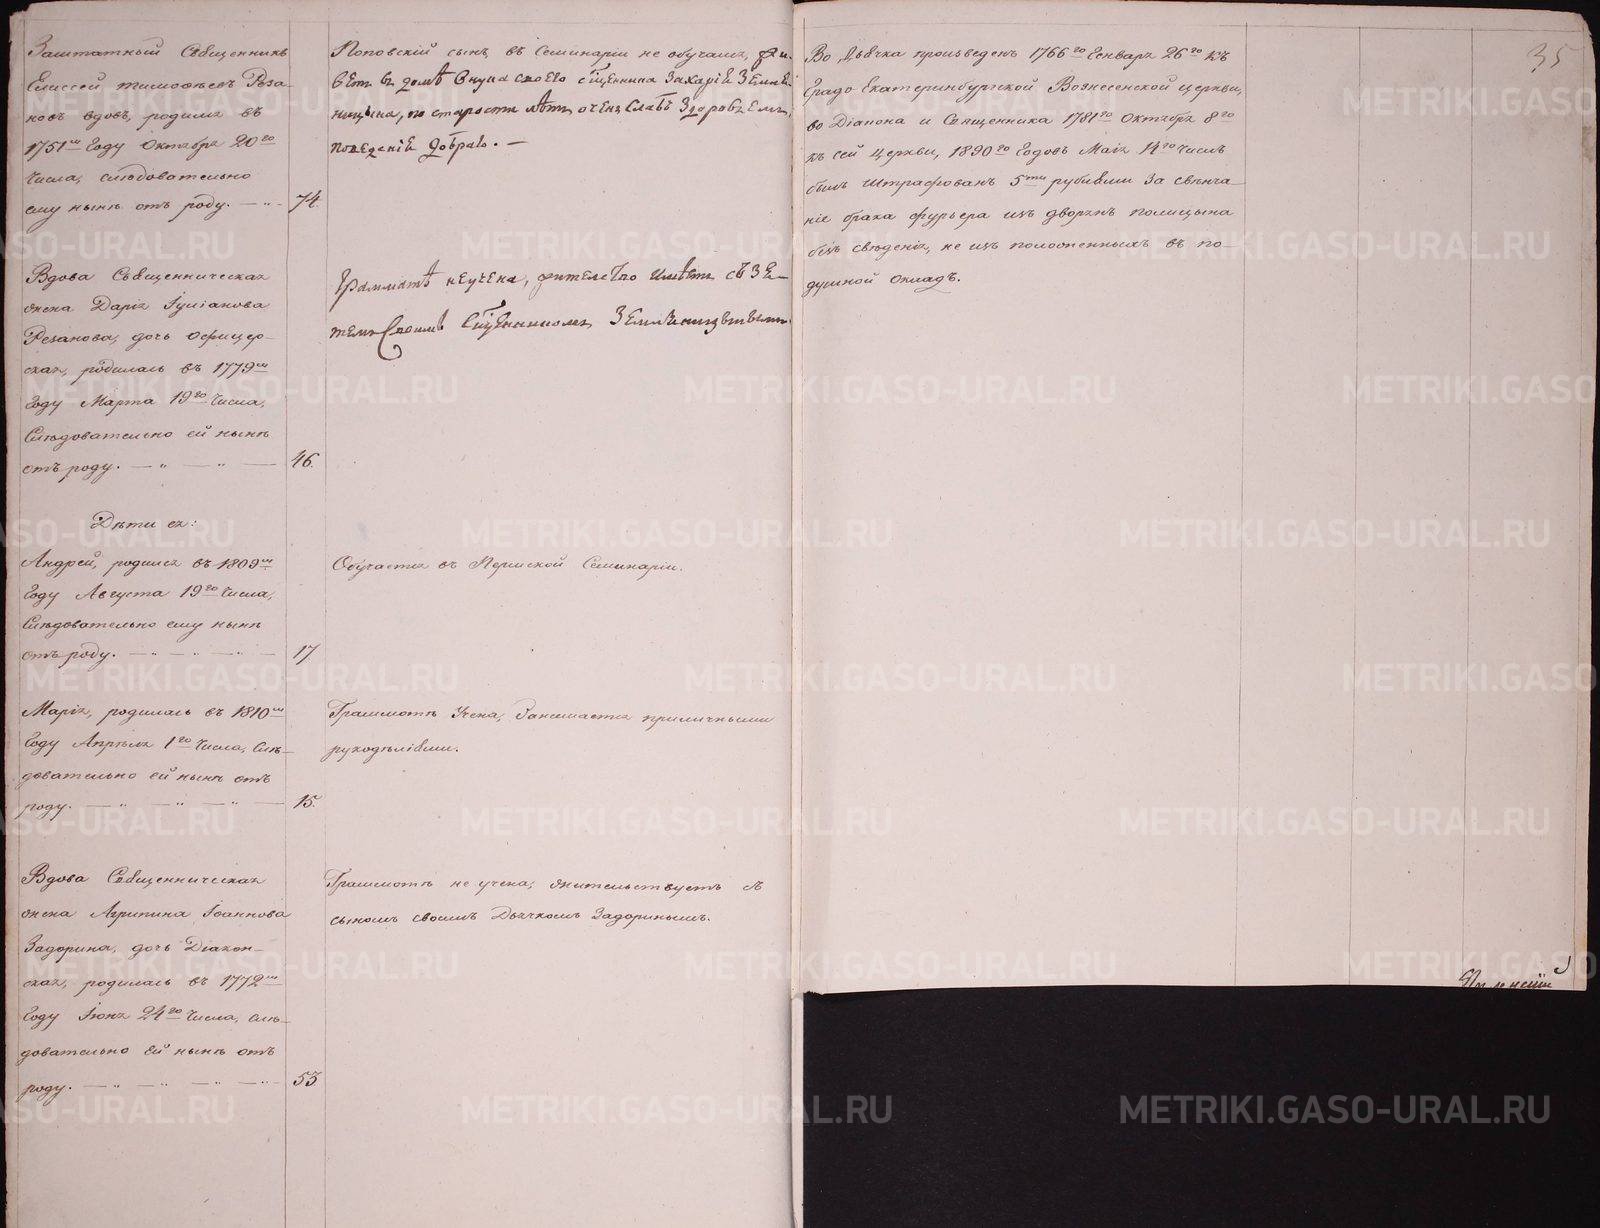 Заштатный Священникъ
Елиссей тимофѣевъ Реза-
новъ вдовъ, родился въ
1751мъ Году Октября 20го
Числа, слѣдовательно
ему нынѣ отъ роду. — „ - 74.
Поповскій сынъ, въ Семинаріи не обучался, жи-
ветъ въ домѣ внука своего священника Захаріи
по старости лѣтъ очень слабъ Здоровьемъ,
поведенія добраго. —
Вдова Священническая
жена Дарія Іуліанова
Резанова, дочь офицер-
ская, родилась въ 1779мъ
Году Марта 19го Числа,
Слѣдовательно ей нынѣ
отъ роду. — „ — „ — 46.
Грамматѣ неучена, жителство имѣетъ съ Зя-
темъ Своимъ Священникомъ
Дѣти ея:
Андрей, родился въ 1809мъ
Году Августа 19го Числа,
Слѣдовательно ему нынѣ
отъ роду. — „ — „ — „ — 17
Обучается въ Пермской Семинаріи.
Марія, родилась въ 1810мъ
Году Апрѣля 1го Числа, Слѣ-
довательно ей нынѣ отъ
роду. — „ — „ — „ — 15.
Грамматѣ Учена, Занимается приличными
рукодѣліями.
Вдова Священническая
жена Агрипина Іоаннова
Задорина, дочь Діакон-
ская, родилась въ 1772мъ
Году Іюня 24го Числа, слѣ-
довательно ей нынѣ отъ
роду. — „ — „ — „ — „ - 53
Грамматѣ не учена, жительствуетъ съ
сыномъ своимъ Дьячкомъ Задоринымъ.
35
Во Дьячка произведенъ 1766го Генваря 26го къ
Градо Екатеринбургской Вознесенской церкви,
во Діакона и Священника 1781го Октября 8го
къ сей церкви, Годовъ Маія 14го Числъ
былъ Штрафованъ 5ти рублями За свѣнча-
ніе брака фурьера изъ дворянъ
безъ свѣденія, не изъ положенныхъ въ по-
душной окладъ.
METRIKI.GASO-URAL.RU